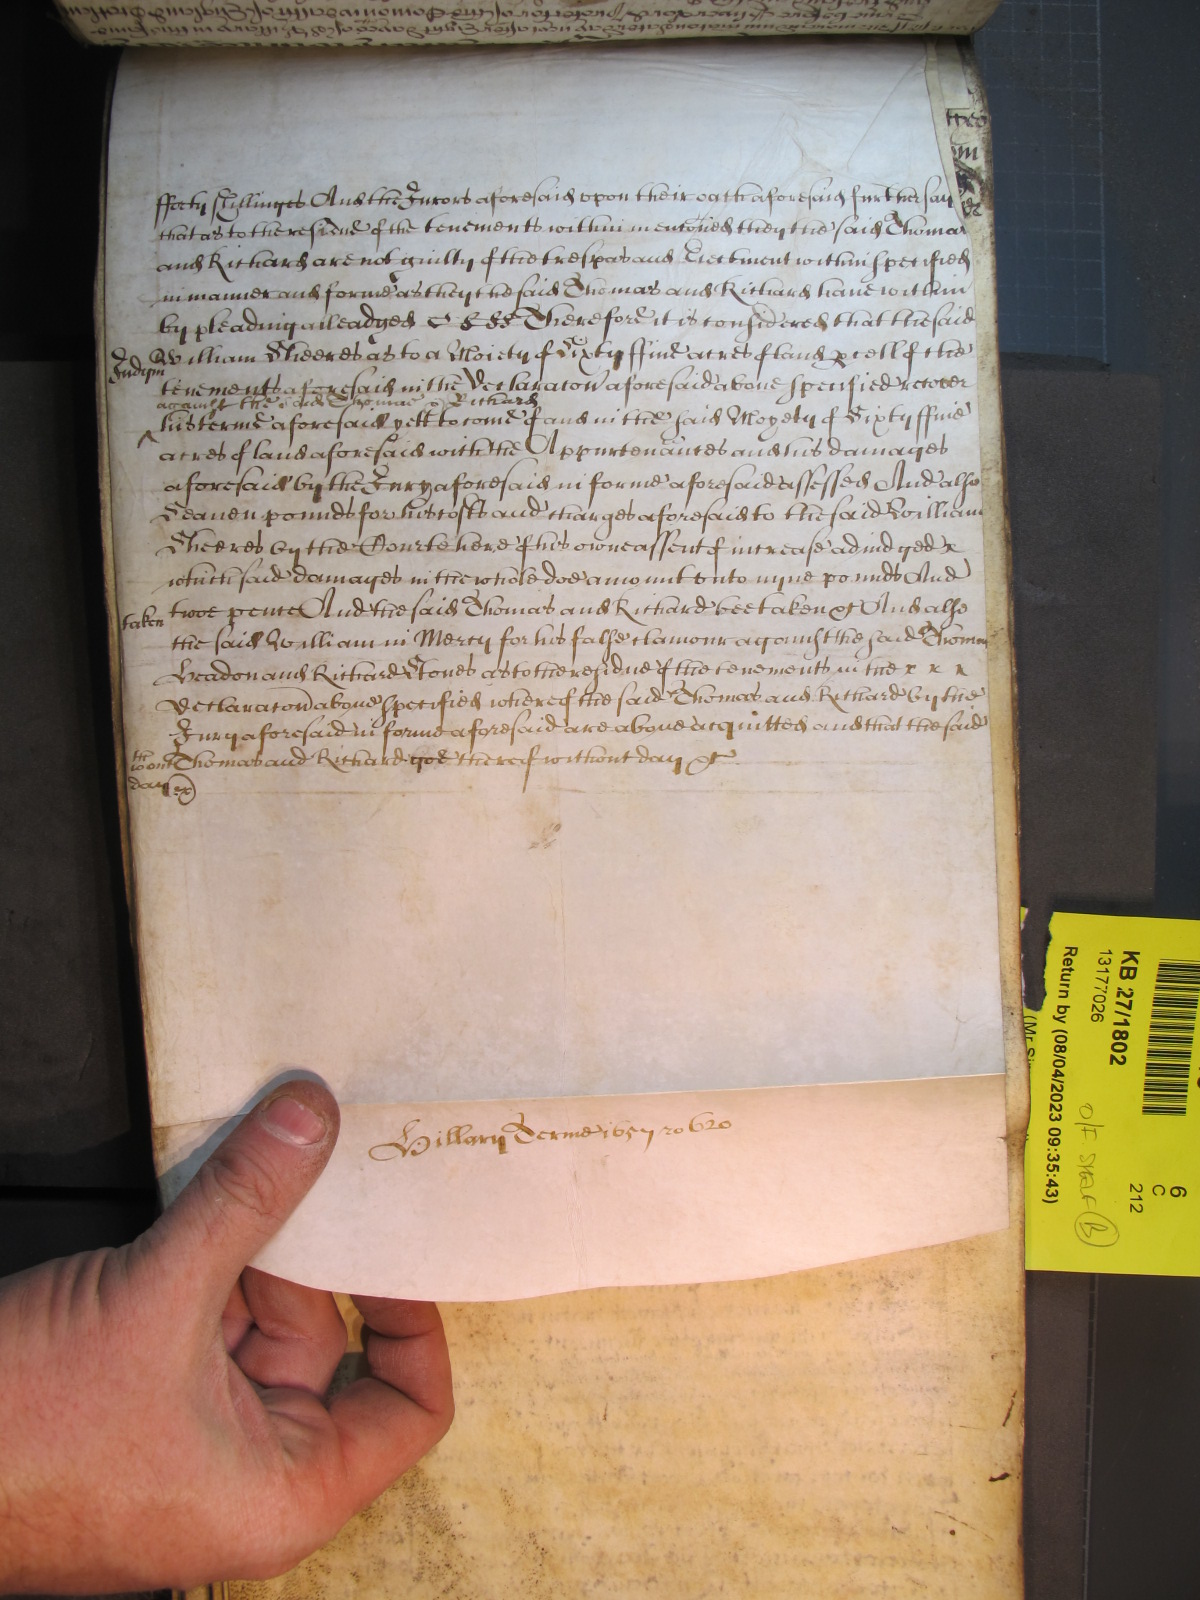 fforty Shillinges And the Jurors aforesaid upon their oath aforesaid further say
that as to the residue of the tenements within mentioned they the said Thomas
and Richard are not guilty of the trespas and Ejectment within specified
in manner and forme as they the said Thomas and Richard have within
by pleading alleadged Therefore it is considered that the said
Judgmt
William Sheeres as to a Moiety of Sixty ffive acres of land pcell of the
tenements aforesaid in the Declaration aforesaid above specified recover
against the said Thomas & Richard
his terme aforesaid yett to come of and in the said Moyety of Sixty ffive
acres of land aforesaid with the Appurtenances and his damages
aforesaid by the Jury aforesaid in forme aforesaid assessed And also
Seaven pounds for his costs and charges aforesaid to the said William
Sheeres by the Courte here of his owne assent of increase adiudged
which said damages in the whole doe amount unto nyne pounds And
taken
twoe pence And the said Thomas and Richard bee taken &c And also
the said William in Mercy for his false clamour against the said Thomas
Beadon and Richard Stones as to the residue of the tenements in the
Declaration above specified whereof the said Thomas and Richard by the
Jury aforesaid in forme aforesaid are above acquitted and that the said
Thomas and Richard goe thereof without day &c
wout
day
Hillary Terme 1657 ro 620
KB 27/1802
13177026
Return by (08/04/2023 09:35:43)
O/F SHELF (B)
6
C
212